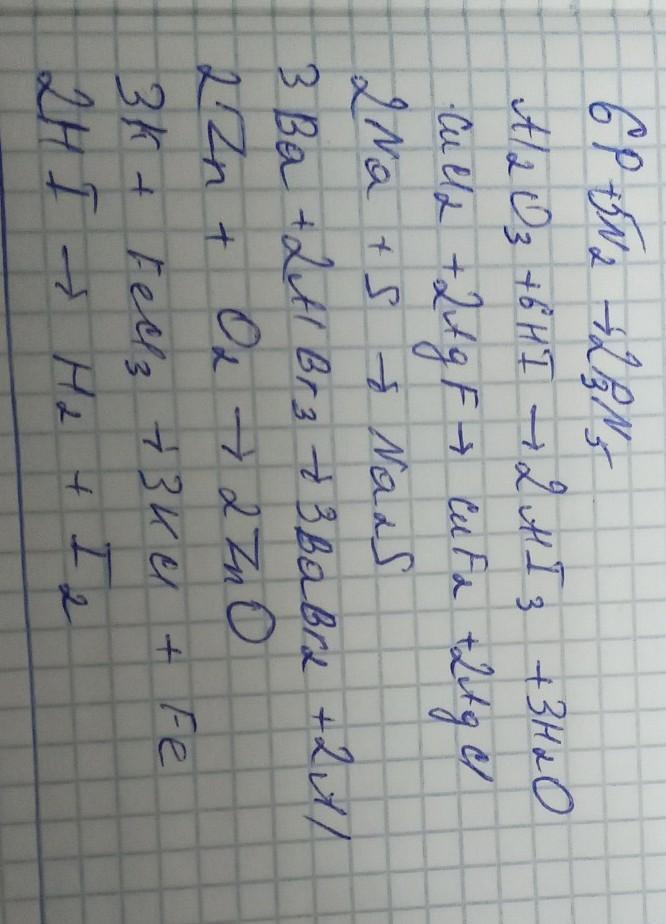 6P + 5N₂ → 2P₃N₅
Al₂O₃ + 6HI → 2AlI₃ + 3H₂O
CuCl₂ + 2AgF → CuF₂ + 2AgCl
2Na + S → Na₂S
3Ba + 2AlBr₃ → 3BaBr₂ + 2Al
2Zn + O₂ → 2ZnO
3K + FeCl₃ → 3KCl + Fe
2HI → H₂ + I₂